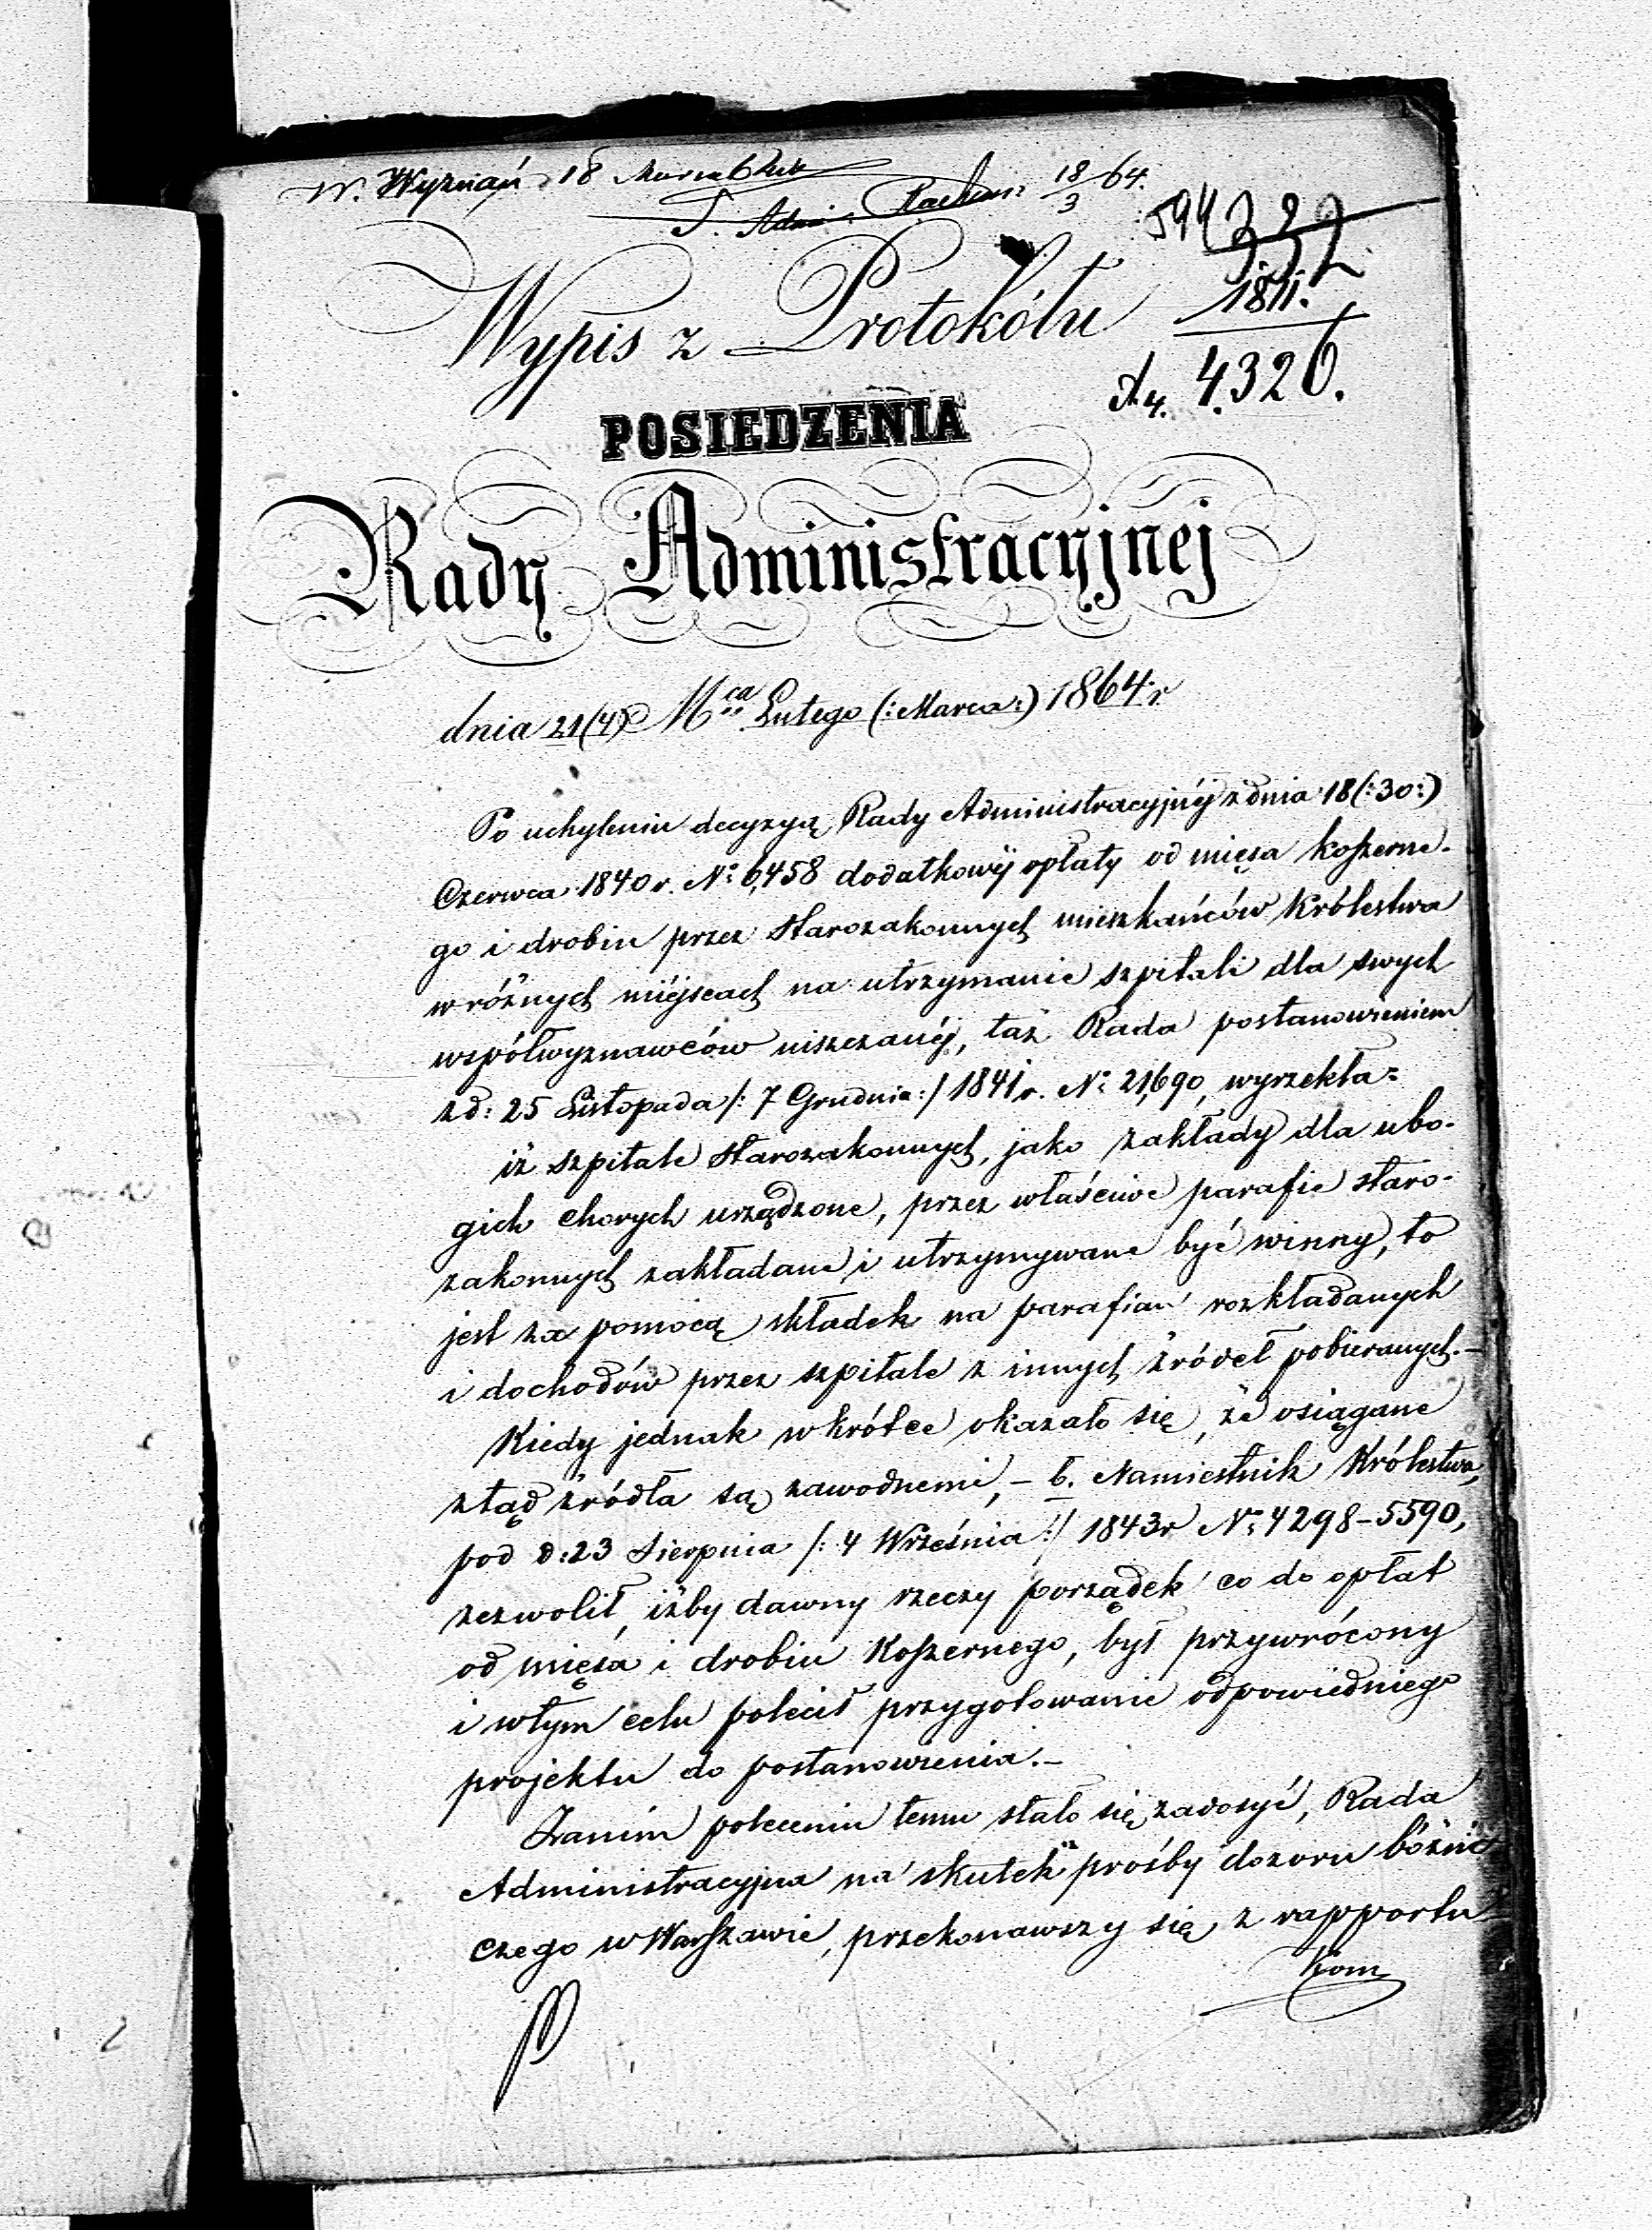 W. Wyznań 18 Marca 64
18/3 64.
594
1811.
4.320.
Wypis z Protokółu
POSIEDZENIA
Rady Administracyjnej
dnia 21 (4) Mca Lutego (: Marca :) 1864 r
Po uchyleniu decyzyą Rady Administracyjnéj z dnia 18 (: 30 :)
Czerwca 1840 r. No 6,458 dodatkowéj opłaty od mięsa koszerne-
go i drobiu przez starozakonnych mieszkańców Królestwa
w różnych miéjscach na utrzymanie szpitali dla swych
współwyznawców uiszczanéj, taż Rada postanowieniem
z d: 25 Listopada /: 7 Grudnia :/ 1841 r. No 21,690, wyrzekła:
iż szpitale starozakonnych, jako zakłady dla ubo-
gich chorych urządzone, przez właściwe parafie staro-
zakonnych zakładane i utrzymywane być winny, to
jest za pomocą składek na parafian rozkładanych
i dochodów przez szpitale z innych źródeł pobieranych. –
Kiedy jednak wkrótce okazało się, że osiągane
ztąd źródła są zawodnemi, – b. Namiestnik Królestwa,
pod d: 23 Sierpnia /: 4 Września :/ 1843 r No 4298–5590,
zezwolił, iżby dawny rzeczy porządek co do opłat
od mięsa i drobiu koszernego, był przywrócony
i w tym celu polecił przygotowanie odpowiedniego
projektu do postanowienia. –
Zanim poleceniu temu stało się zadosyć, Rada
Administracyjna na skutek prośby dozoru bóżni-
czego w Warszawie, przekonawszy się z rapportu
Kom